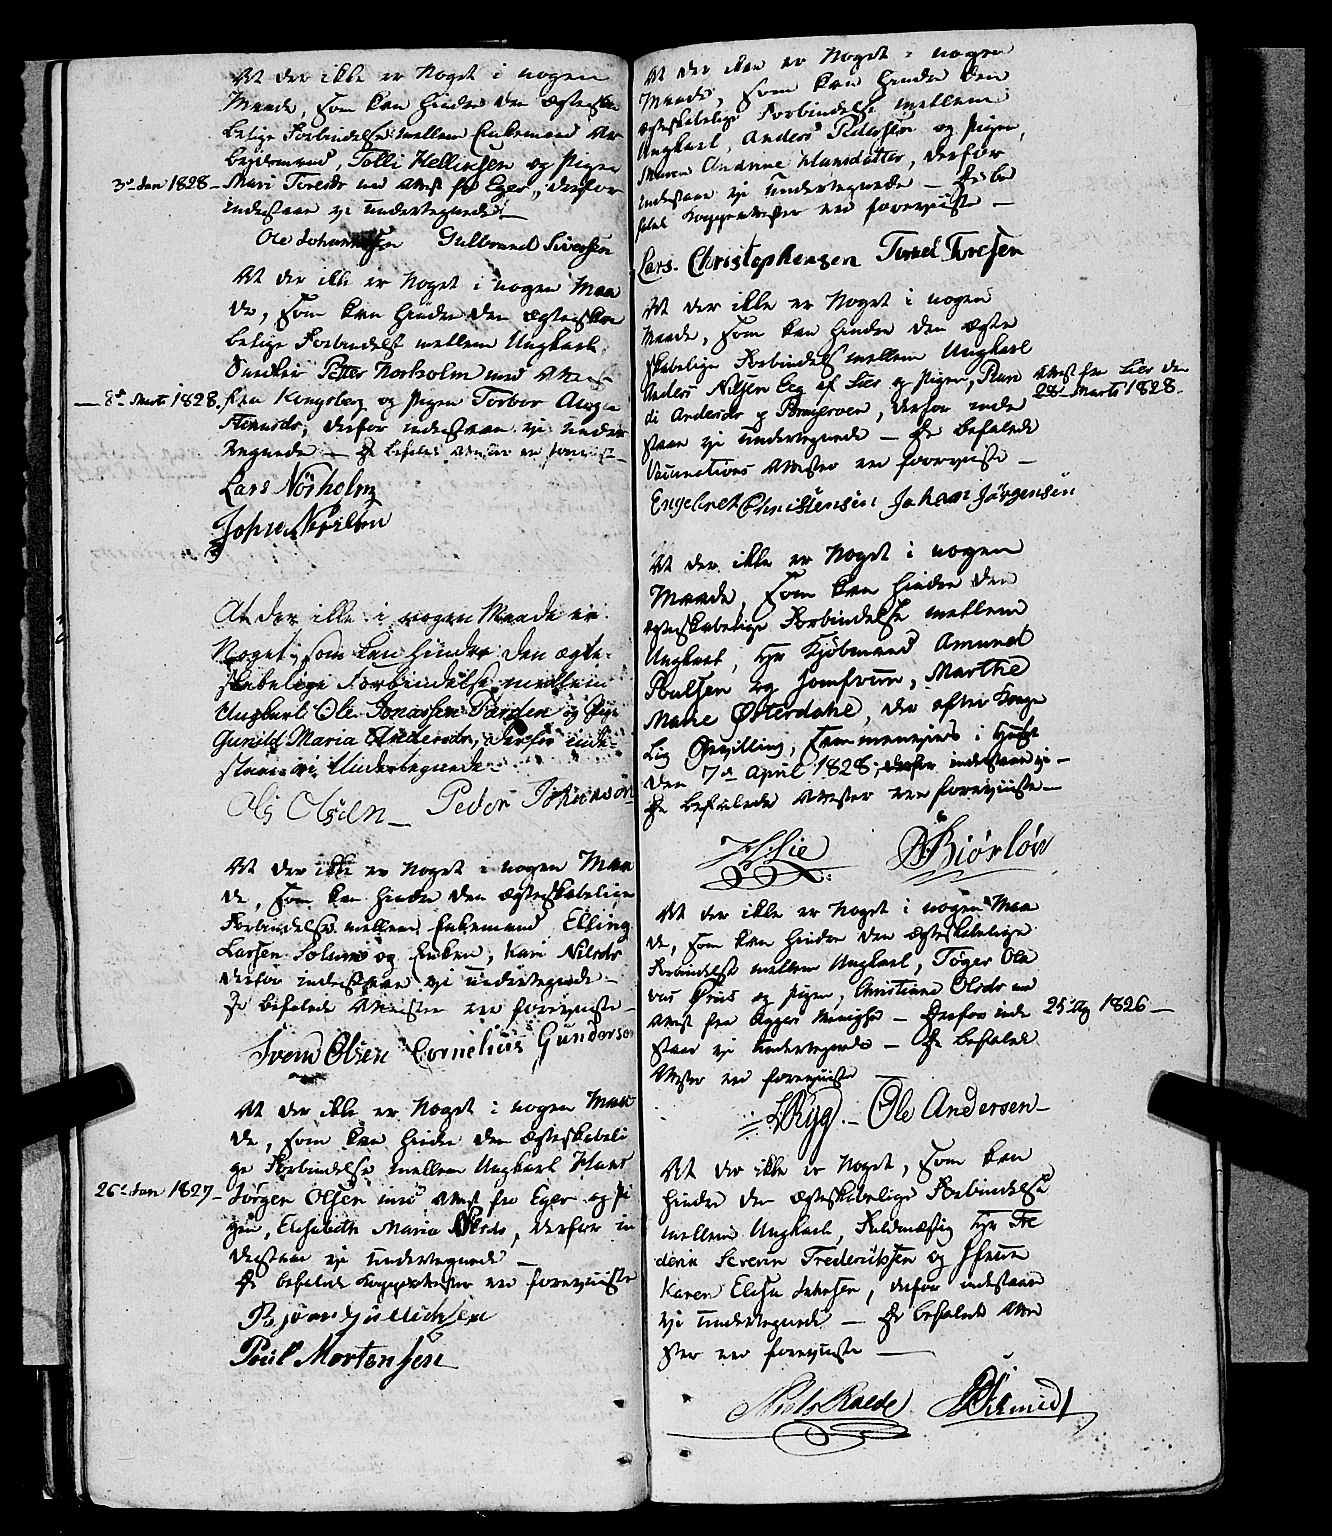 At der ikke er Noget i nogen
Maade, som kan hindre den ægteska-
belige Forbindelse mellem Enkemand Ar-
beidsmand, Tolli Hellissen og Pigen
3 Jan 1828 – Mari Toresdr med Attest fra Eger, derfor
indestaae vi undertegnede. –
Ole Johannssen Gulbrand Siversen
At der ikke er Noget i nogen Maa
de, som kan hindre den ægteska
belige Forbindelse mellem Ungkarl,
Snedker Petter Norholm med Attest
– 8de Marts 1828. fra Kongsberg og Pigen Torbor Aloge
Steensdr, derfor indestaae vi under
tegnede – De befalede Attester ere foreviist –
Lars Nórholm
John Nerilsen
At der ikke i nogen Maade er
Noget, som kan hindre den ægte-
skabelige Forbindelse mellem
Ungkarl Ole Jonassen Parsen og Pige
Gunild Maria Andersdr, derfor inde-
staae vi Undertegnede
Ols Olsen – Peder Johanson
At der ikke er Noget i nogen Maa
de, som kan hindre den ægteskabelige
Forbindelse mellem Enkemand Elling
Larsen Solum og Enken, Kari Nilsdr
derfor indestaae vi undertegnede –
De befalede Attester ere foreviiste –
Svend Olsen Cornelius Gunderson
At der ikke er Noget i nogen Maa
de, som kan hindre den ægteskabeli
ge Forbindelse mellem Ungkarl Hans
26de Jan 1827 – Jørgen Olsen med Attest fra Eger og Pi
gen, Elisabeth Maria Nilsdr, derfor in
destaae vi undertegnede –
De befalede Koppeattester ere foreviiste
Bjørn Gullichsen
Poul Mortensen
At der ikke er Noget i nogen
Maade, som kan hindre den
ægteskabelige Forbindelse mellem
Ungkarl, Anders Pedersen og Pigen,
Maren Andrine Hansdatter, derfor
indestaae vi undertegnede – De be
falede Koppeattester ere foreviiste –
Lars Christophersen Torved Toresen
At der ikke er Noget i nogen
Maade, som kan hindre den ægte
skabelige Forbindelse mellem Ungkarl
Anders Nilsen Eeg af Lier og Pigen, Ran Attest fra Lier den
di Andersdr og Bragerøen, derfor inde 28de Marts 1828.
staae vi undertegnede – De befalede
Vaccinations Attester ere foreviiste –
Engebret Christensen Johan Jørgensen
At der ikke er Noget i nogen
Maade, som kan hindre den
ægteskabelige Forbindelse mellem
Ungkarl, Hr Kjøbmand Amund
Poulsen og Jomfrue, Marthe
Marie Østerdahl, der efter Konge
lig Bevilling, sammenvies i Huset
den 7de April 1828, derfor indestaae vi –
De befalede Attester ere foreviiste –
Lie Biørløw
At der ikke er Noget i nogen Maa
de, som kan hindre den ægteskabelige
Forbindelse mellem Ungkarl, Tøger Ola
vus Ørns og Pigen, Christiane Olsdr med
Attest fra Aggers Menighed – Derfor inde 25 Ag 1826 –
staae vi undertegnede – De befalede
Attester ere foreviiste –
Ryg. – Ole Andersen –
At der ikke er Noget, som kan
hindre den ægteskabelige Forbindelse
mellem Ungkarl, Fuldmægtig Hr Fre
derik Severin Frederiksen og Jfrue
Karen Elisa Jahnsen, derfor indestaae
vi undertegnede – De befalede Atte
ster ere foreviiste –
Niels Roede Schmidt